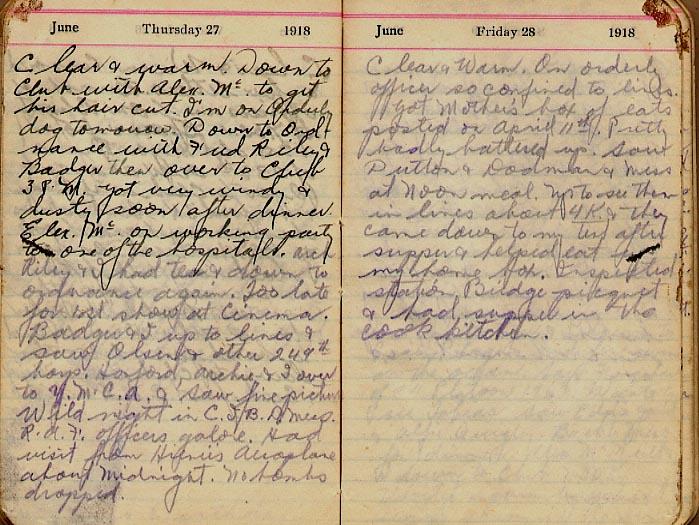 June Thursday 27 1918
Clear & warm. Down to
Club with Alex. Mc. to get
his hair cut. I'm on Orderly
dog tomorrow. Down to Ord
nance with Fred Riley &
Badger then over to Club
38 M. got very windy &
dusty soon after dinner.
Elex. Mc. on working party
to one of the hospitals.
Riley & I had tea & down to
ordnance again. Too late
for 1st show at Cinema.
Badger & I up to lines &
saw Olsen & other 249th
boys. Hoxford, archie & I over
to Y.M.C.A. & saw fine picture
Wild night in C.I.B.D. Mess.
R.A.F. officers galore. Had
visit from Huns Aeroplane
about Midnight. No bombs
dropped.
June Friday 28 1918
Clear & Warm. On orderly
officer so confined to lines.
Got Mother's box of eats
posted on April 11th. Pretty
badly battered up. Saw
Dutton & Dodman & Miss
at Noon meal. Up to see them
in lines about 4 K. & they
came down to my tent after
supper & helped eat
my home box. Inspected
station Bridge picquet
& had supper in the
cook kitchen.